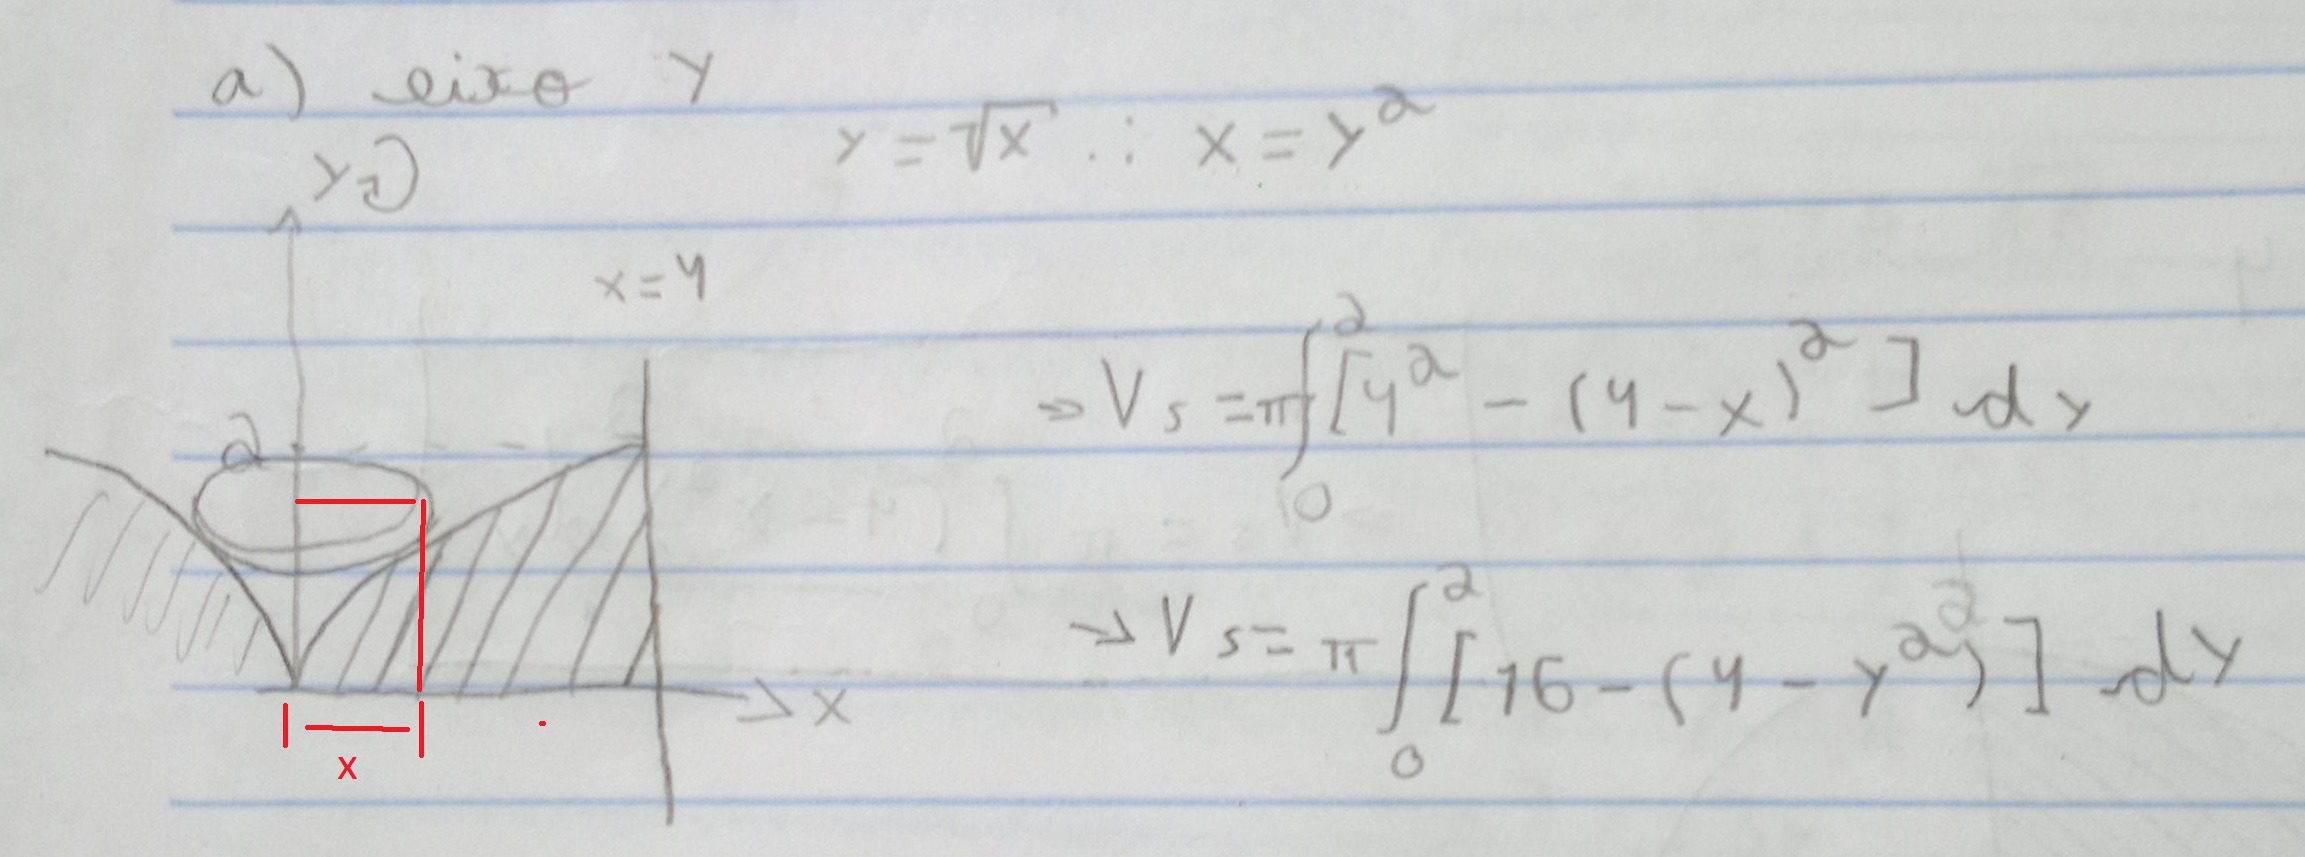 a) eixo y
y = √x ∴ x = y²
y
x = 4
⇒ Vs = π∫₀² [4² - (4 - x)²] dy
2
→ Vs = π∫₀² [16 - (4 - y²)²] dy
x
x